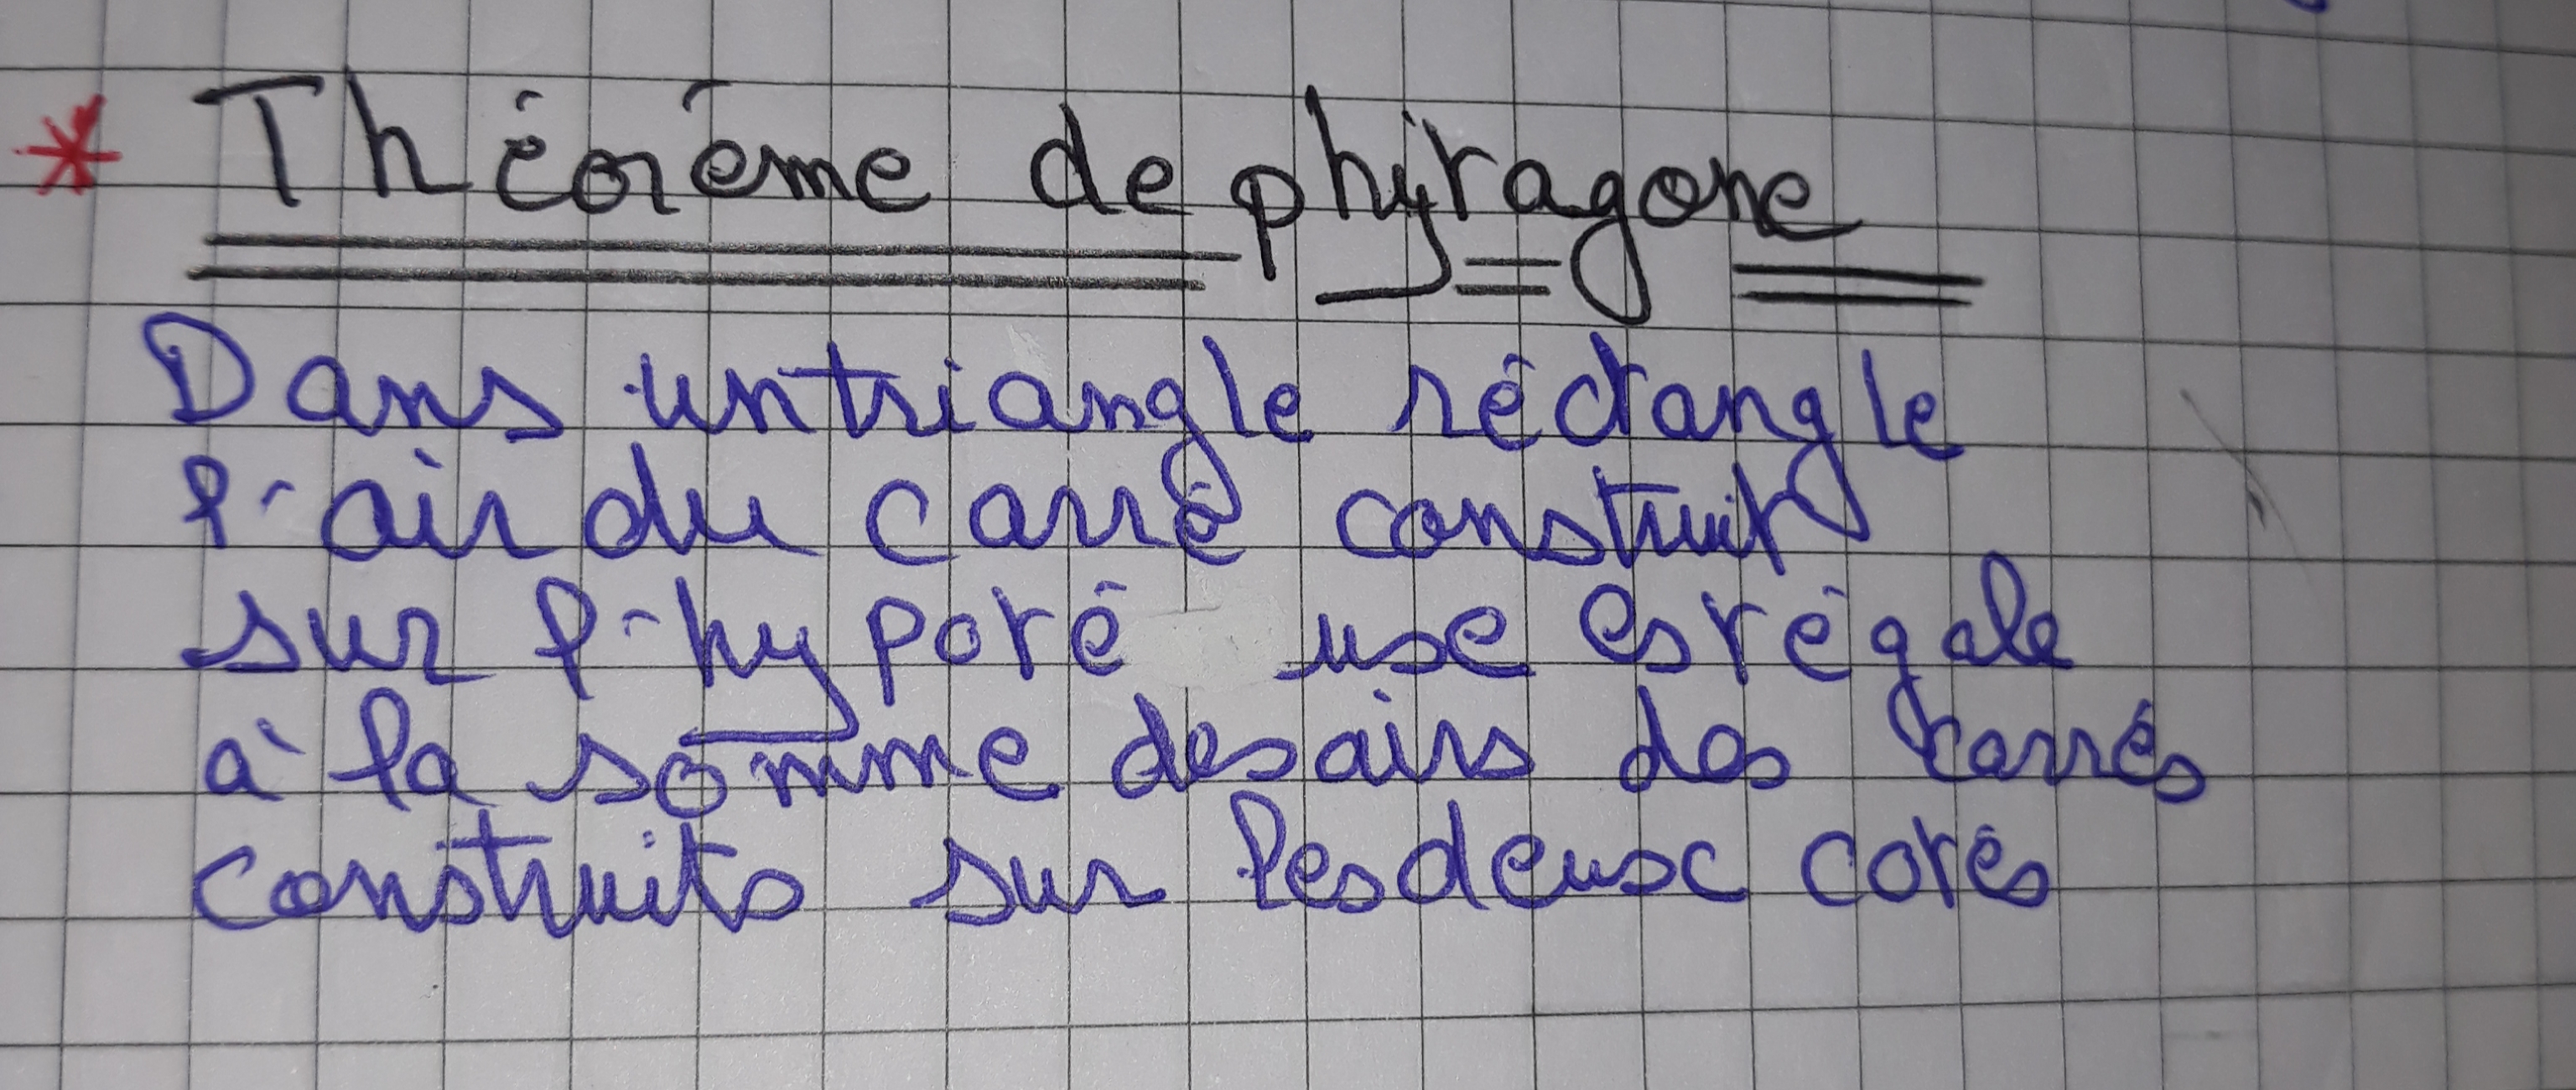 * Théoréme de phytagone
Dans un triangle réctangle
l'air du carré construit
sur l'hypoté use est égale
à la somme des airs des carrés
construits sur les deux cotés